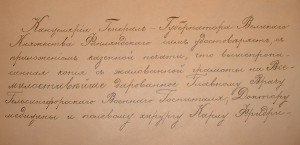 Канцелярія Генералъ-Губернатора Великаго
Княжества Финляндскаго симъ удостовѣряетъ, съ
приложеніемъ казенной печати, что вышепропи-
санная копія съ жалованной грамоты на Все-
милостивѣйше дарованное Главному Врачу
Гельсингфорскаго Военнаго Госпиталя, Доктору
медицины и полевому хирургу Карлу Фридри-